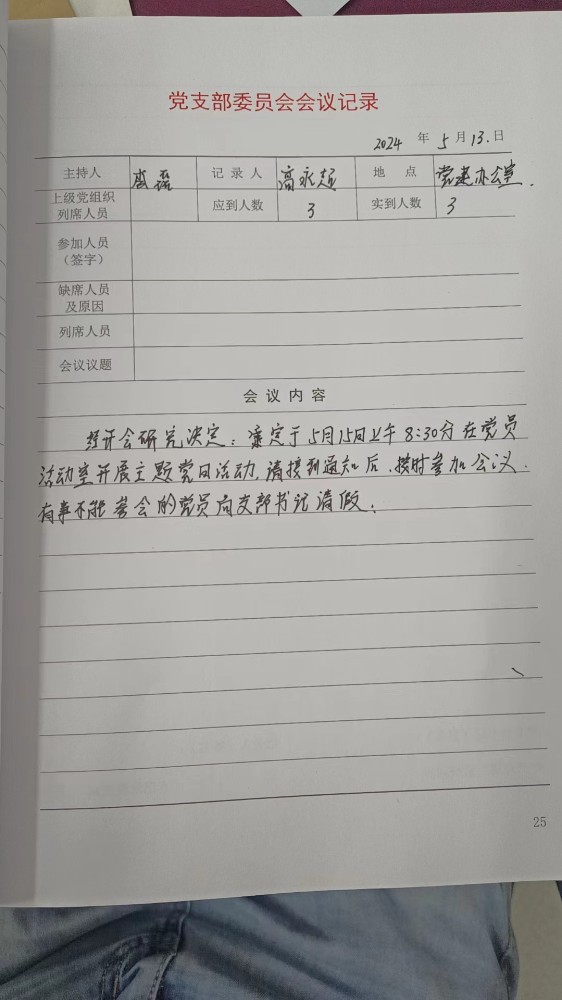 党支部委员会会议记录
2024 年 5 月 13. 日
主持人 磊 记录人 高永超 地点 党建办公室.
上级党组织列席人员 应到人数 3 实到人数 3
参加人员
（签字）
缺席人员
及原因
列席人员
会议议题
会议内容
经评会研究决定：兹定于5月15日上午8:30分在党员
活动室开展主题党日活动,请接到通知后、按时参加会议.
有事不能参会的党员向支部书记请假;
25